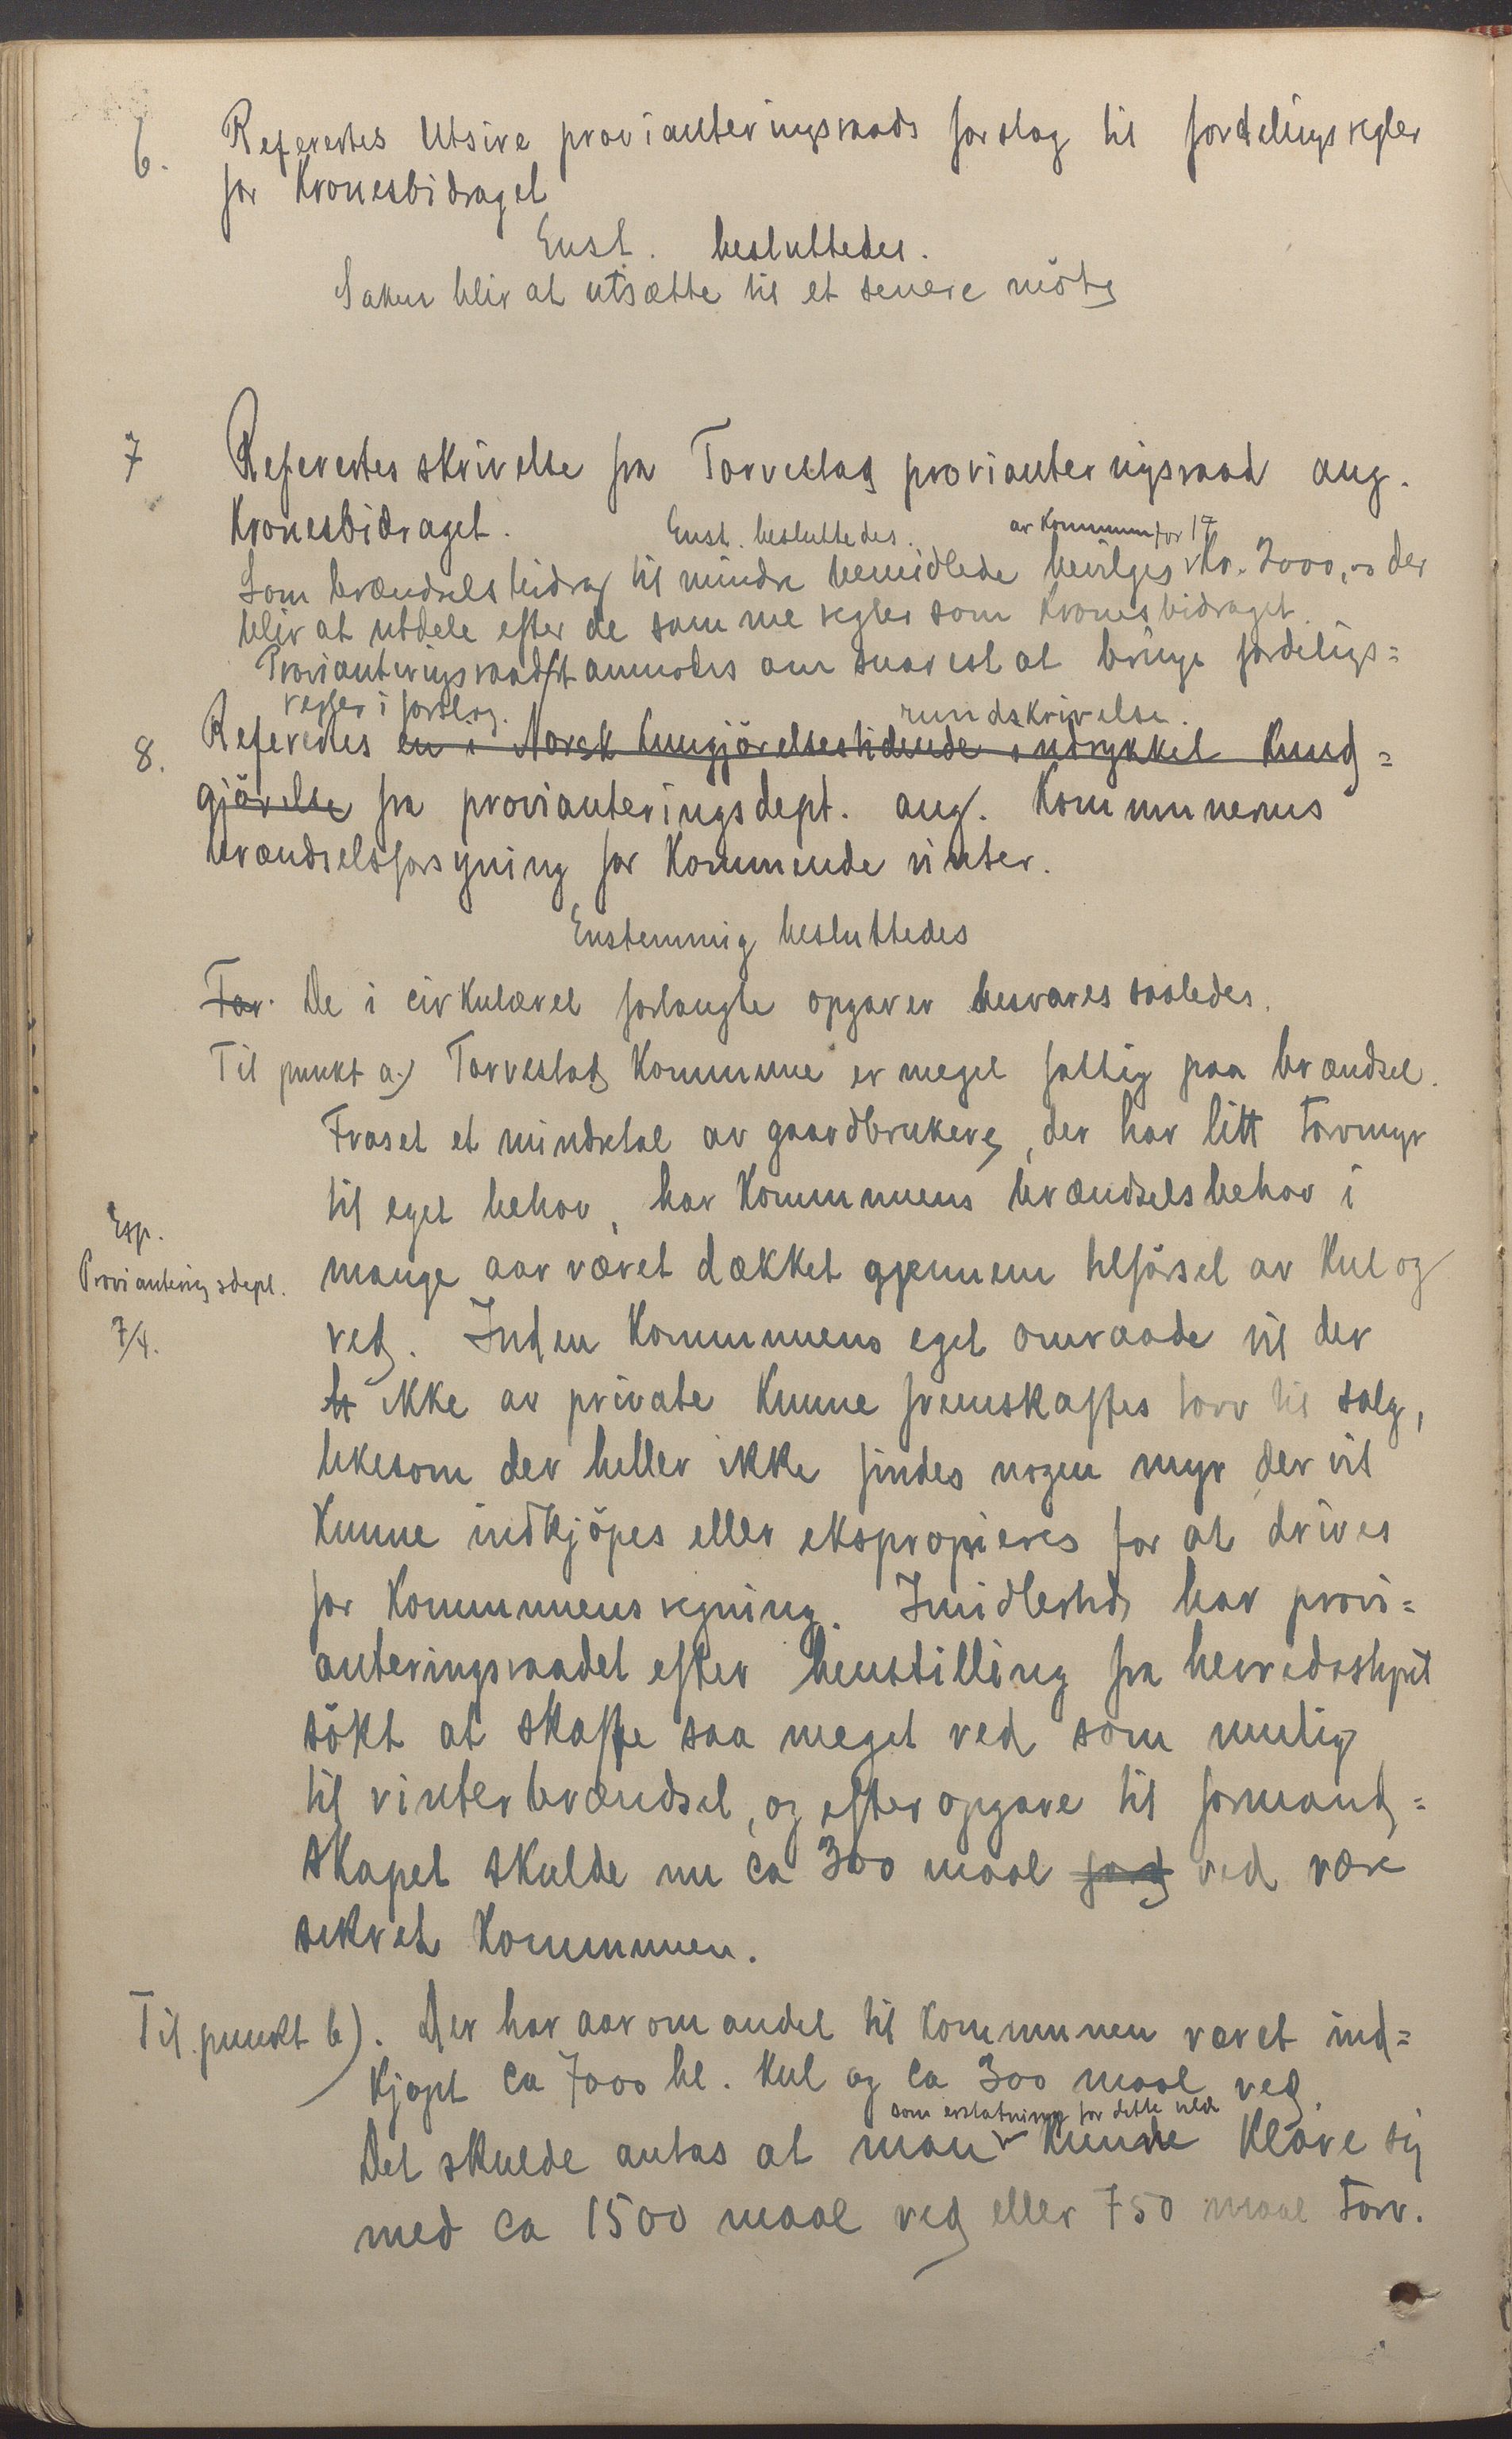 6. Refereres Utsire provianteringsraads forslag til fordelingsregler
for Kronesbidraget
Enst. besluttedes.
Saken blir at utsætte til et senere möte
7 Refereres skrivelse fra Torvestad provianteringsraad ang.
Kronesbidraget.
Enst. besluttedes.
av kommunen for 17
Som brændselsbidrag til mindre bemidlede bevilges Kr. 2000,00 der
blir at utdele efter de samme regler som Kronesbidraget.
Provianteringsraadet anmodes om snarest at bringe fordelings=
regler i forslag.
rundskrivelse.
8. Refereres en i Norsk kungjörelsestidende indrykket Kund=
gjörelse fra provianteringsdept. ang. Kommunernes
brændselsforsyning for Kommende vinter.
Enstemmig besluttedes
For. De i cirkulæret forlangte opgaver besvares saaledes.
Til punkt a.) Torvestad Kommune er meget fattig paa brændsel.
Fraset et mindretal av gaardbrukere, der har litt torvmyr
til eget behov, har Kommunens brændselsbehov i
Exp.
Provianteringsdept.
7/4.
mange aar været dækket gjennem tilförsel av Kul og
ved. Inden Kommunens eget omraade vil der
ikke av private Kunne fremskaffes torv til salg,
likesom der heller ikke findes nogen myr der vil
Kunne indkjöpes eller eksproprieres for at drives
for Kommunens regning. Imidlertid har provi=
anteringsraadet efter henstilling fra herredsstyret
sökt at skaffe saa meget ved som mulig
til vinterbrændsel, og efter opgave til formand=
skapet skulde nu ca 300 maal ved være
sikret Kommunen.
Til punkt b). Der har aar om andet til Kommunen været ind=
Kjöpt ca 7000 hl. Kul og ca 300 maal ved.
som erstatning for dette
Det skulde antas at man Kunde Klare sig
med ca 1500 maal ved eller 750 maal torv.